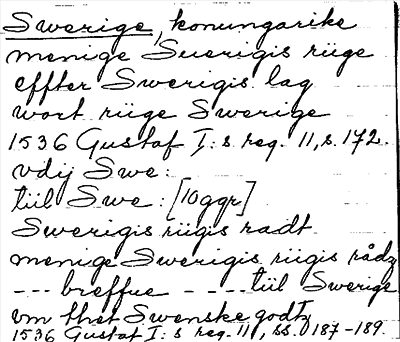 Swerige, konungarike
menige Suerigis rüge
effter Swerigis lag
wort rüge Swerige
1536 Gustaf I:s reg. 11, s. 172.
vdij Swe:
tiil Swe: [10 ggr]
Swerigis riigis radt
menige Swerigis riigis rådz
--- breffue - - - tiil Swerige
vm thet Swenske godtz
1536 Gustaf I:s reg. 11, ss. 187-189.